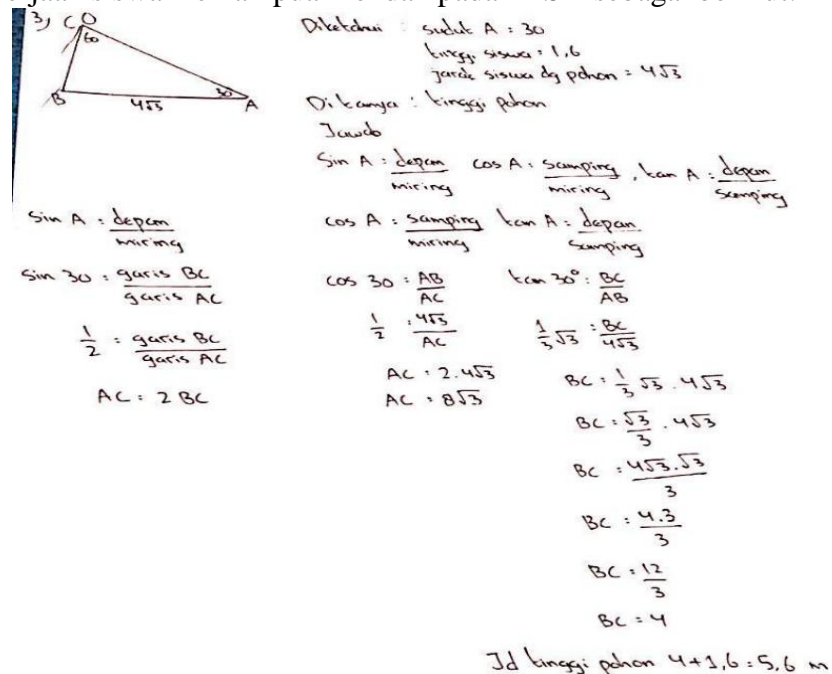 3)
C
60
B
4√3
30
A
Diketahui : sudut A = 30
tinggi siswa = 1,6
jarak siswa dg pohon = 4√3
Ditanya : tinggi pohon
Jawab
Sin A = depan/miring cos A = samping/miring , tan A = depan/samping
Sin A = depan/miring
Sin 30 = garis BC/garis AC
1/2 = garis BC/garis AC
AC = 2 BC
cos A = samping/miring
cos 30 = AB/AC
1/2 = 4√3/AC
AC = 2.4√3
AC = 8√3
tan A = depan/samping
tan 30° = BC/AB
1/3 √3 = BC/4√3
BC = 1/3 √3 . 4√3
BC = √3/3 . 4√3
BC = 4√3.√3/3
BC = 4.3/3
BC = 12/3
BC = 4
Jd tinggi pohon 4+1,6 = 5,6 m